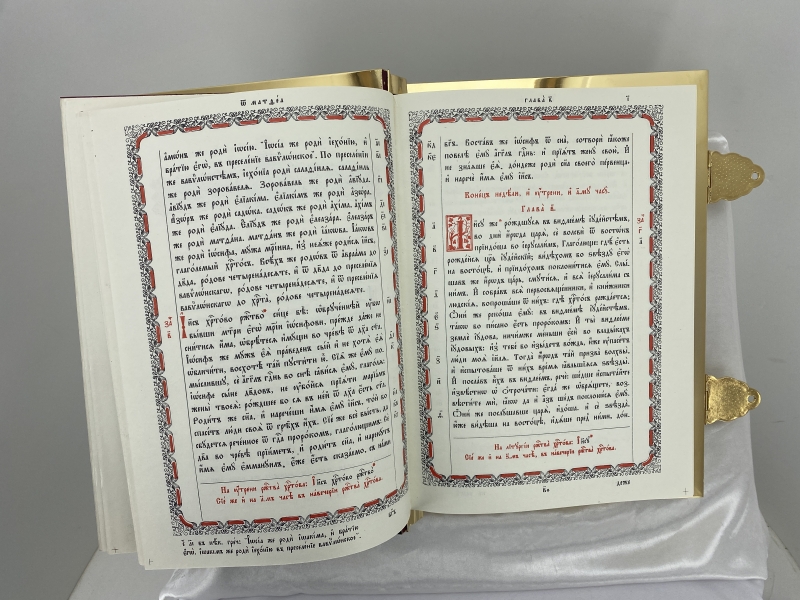 Ѿ МАТѲЕ́А
а҆мѡ́нъ же родѝ і҆ѡсі́ю. І҆ѡсі́а же родѝ і҆ехо́нію, и҆
бра́тію є҆гѡ̀, въ преселе́ніе вавѷлѡ́нское. По преселе́ніи
же вавѷлѡ́нстѣмъ, і҆ехо́ніа родѝ салаѳі́илѧ. салаѳі́иль
же родѝ зорова́велѧ. Зорова́вель же родѝ а҆вїꙋ́да.
а҆вїꙋ́дъ же родѝ є҆лїакі́ма. є҆лїакі́мъ же родѝ а҆зѡ́ра.
А҆зѡ́ръ же родѝ садѡ́ка. садѡ́къ же родѝ а҆хі́ма. а҆хі́мъ
же родѝ є҆лїꙋ́да. Є҆лїꙋ́дъ же родѝ є҆леаза́ра. є҆леаза́ръ
же родѝ матѳа́на. матѳа́нъ же родѝ і҆а́кѡва. І҆а́кѡвъ
же родѝ і҆ѡ́сифа, мꙋ́жа мр҃і́ина, и҆з̾ неѧ́же роди́сѧ і҆и҃съ,
глаго́лемый хрⷭ҇то́съ. Всѣ́хъ же родѡ́въ ѿ а҆враа́ма до
дв҃да, ро́дове четыренадесѧ́те: и҆ ѿ дв҃да до преселе́ніѧ
вавѷлѡ́нскагѡ, ро́дове четыренадесѧ́те: и҆ ѿ преселе́ніѧ
вавѷлѡ́нскагѡ до хрⷭ҇та̀, ро́дове четыренадесѧ́те.
І҆и҃съ хрⷭ҇то́во ржⷭ҇тво̀ си́це бѣ̀: ѡ҆брꙋче́ннѣй бо
бы́вши мт҃ри є҆гѡ̀ мр҃і́и і҆ѡ́сифови, пре́жде да́же не
сни́тисѧ и҆́ма, ѡ҆брѣ́тесѧ и҆мꙋ́щи во чре́вѣ ѿ дх҃а ст҃а.
І҆ѡ́сифъ же мꙋ́жъ є҆ѧ̀ пра́веденъ сы́й и҆ не хотѧ̀ є҆ѧ̀
ѡ҆бличи́ти, восхотѣ̀ та́й пꙋсти́ти ю҆̀. Сїѧ̑ же є҆мꙋ̀ по-
мы́слившꙋ, сѐ а҆́гг҃лъ гдⷭ҇нь во снѣ̀ ꙗ҆ви́сѧ є҆мꙋ̀, глаго́лѧ:
і҆ѡ́сифе сы́не дв҃довъ, не ᲂу҆бо́йсѧ прїѧ́ти марїа́мъ
жены̀ твоеѧ̀: ро́ждшее бо сѧ въ не́й ѿ дх҃а є҆́сть ст҃а.
Роди́тъ же сн҃а, и҆ нарече́ши и҆́мѧ є҆мꙋ̀ і҆и҃съ. то́й бо
спасе́тъ лю́ди своѧ̑ ѿ грѣ̑хъ и҆́хъ. Сїе́ же всѐ бы́сть, да
сбꙋ́детсѧ рече́нное ѿ гдⷭ҇а проро́комъ, глаго́лющимъ: Сѐ
дв҃а во чре́вѣ прїи́метъ, и҆ роди́тъ сн҃а, и҆ нарекꙋ́тъ
и҆́мѧ є҆мꙋ̀ є҆ммανꙋ́илъ, є҆́же є҆́сть сказа́емо, съ на́ми
На ᲂу҆́трени ржⷭ҇тва̀ хрⷭ҇то́ва: І҆и҃съ хрⷭ҇то́во ржⷭ҇тво̀
Сїѐ же и҆ на а҃-мъ часѣ̀, въ навече́рїи ржⷭ҇тва̀ хрⷭ҇то́ва.
бг҃ъ
въ нѣ́к. гре́ч: І҆ѡсі́а же родѝ і҆ѡакі́ма, и҆ бра́тію
є҆гѡ̀, і҆ѡакі́мъ же родѝ і҆ехо́нію въ преселе́ніе вавѷлѡ́нское.
ГЛАВА̀ В҃
бг҃ъ. Воста́въ же і҆ѡ́сифъ ѿ сна̀, сотворѝ ꙗ҆́коже
повелѣ̀ є҆мꙋ̀ а҆́гг҃лъ гдⷭ҇нь: и҆ прїѧ́тъ женꙋ̀ свою̀. И҆
не зна́ѧше є҆ѧ̀, до́ндеже родѝ сн҃а своего̀ пе́рвенца,
и҆ наречѐ и҆́мѧ є҆мꙋ̀ і҆и҃съ.
Коне́цъ недѣ́ли, и҆ ᲂу҆́трени, и҆ а҃-мꙋ часꙋ̀.
Глава̀ в҃.
І҆и҃сꙋ же ро́ждшꙋсѧ въ виѳлее́мѣ і҆ꙋде́йстѣмъ,
во дни̑ и҆́рѡда царѧ̀, сѐ волсвѝ ѿ востѡ́къ
прїидо́ша во і҆ерⷭ҇али́мъ, Глаго́люще: гдѣ̀ є҆́сть
рожде́йсѧ цр҃ь і҆ꙋде́йскїй; ви́дѣхомъ бо ѕвѣздꙋ̀ є҆гѡ̀
на восто́цѣ, и҆ прїидо́хомъ поклони́тисѧ є҆мꙋ̀. Слы́-
шавъ же и҆́рѡдъ ца́рь, смꙋти́сѧ, и҆ ве́сь і҆ерⷭ҇али́мъ съ
ни́мъ. И҆ собра́въ всѧ̑ первосвѧще́нники, и҆ кни́жники
людскі́ѧ, вопроша́ше ѿ ни́хъ: гдѣ̀ хрⷭ҇то́съ ражда́етсѧ;
Ѻ҆ни́ же реко́ша є҆мꙋ̀: въ виѳлее́мѣ і҆ꙋде́йстѣмъ,
та́кѡ бо пи́сано є҆́сть проро́комъ: И҆ ты̀ виѳлее́ме
землѐ і҆ꙋ́дова, ничи́мже ме́ньши є҆сѝ во влады́кахъ
і҆ꙋ́довыхъ: и҆з̾ тебе́ бо и҆зы́детъ во́ждь, и҆́же ᲂу҆пасе́тъ
лю́ди моѧ̑ і҆и҃лѧ. Тогда̀ и҆́рѡдъ та́й призва̀ волхвы̀,
и҆ и҆спы́товаше ѿ ни́хъ вре́мѧ ꙗ҆́вльшіѧсѧ ѕвѣзды̀.
И҆ посла́въ и҆̀хъ въ виѳлее́мъ, речѐ: ше́дше и҆спыта́йте
и҆звѣ́стнѡ ѡ҆ ѻ҆троча́ти: є҆гда́ же ѡ҆брѧ́щете, воз-
вѣсти́те мѝ, ꙗ҆́кѡ да и҆ а҆́зъ ше́дъ поклоню́сѧ є҆мꙋ̀.
Ѻ҆ни́ же послꙋ́шавше царѧ̀, и҆до́ша. и҆ сѐ ѕвѣзда̀,
ю҆́же ви́дѣша на восто́цѣ, и҆дѧ́ше пред̾ ни́ми, до́н-
На лїтꙋргі́и ржⷭ҇тва̀ хрⷭ҇то́ва: І҆и҃сꙋ
Сїѐ же и҆ на а҃-мъ часѣ̀, въ навече́рїи ржⷭ҇тва̀ хрⷭ҇то́ва.
деже